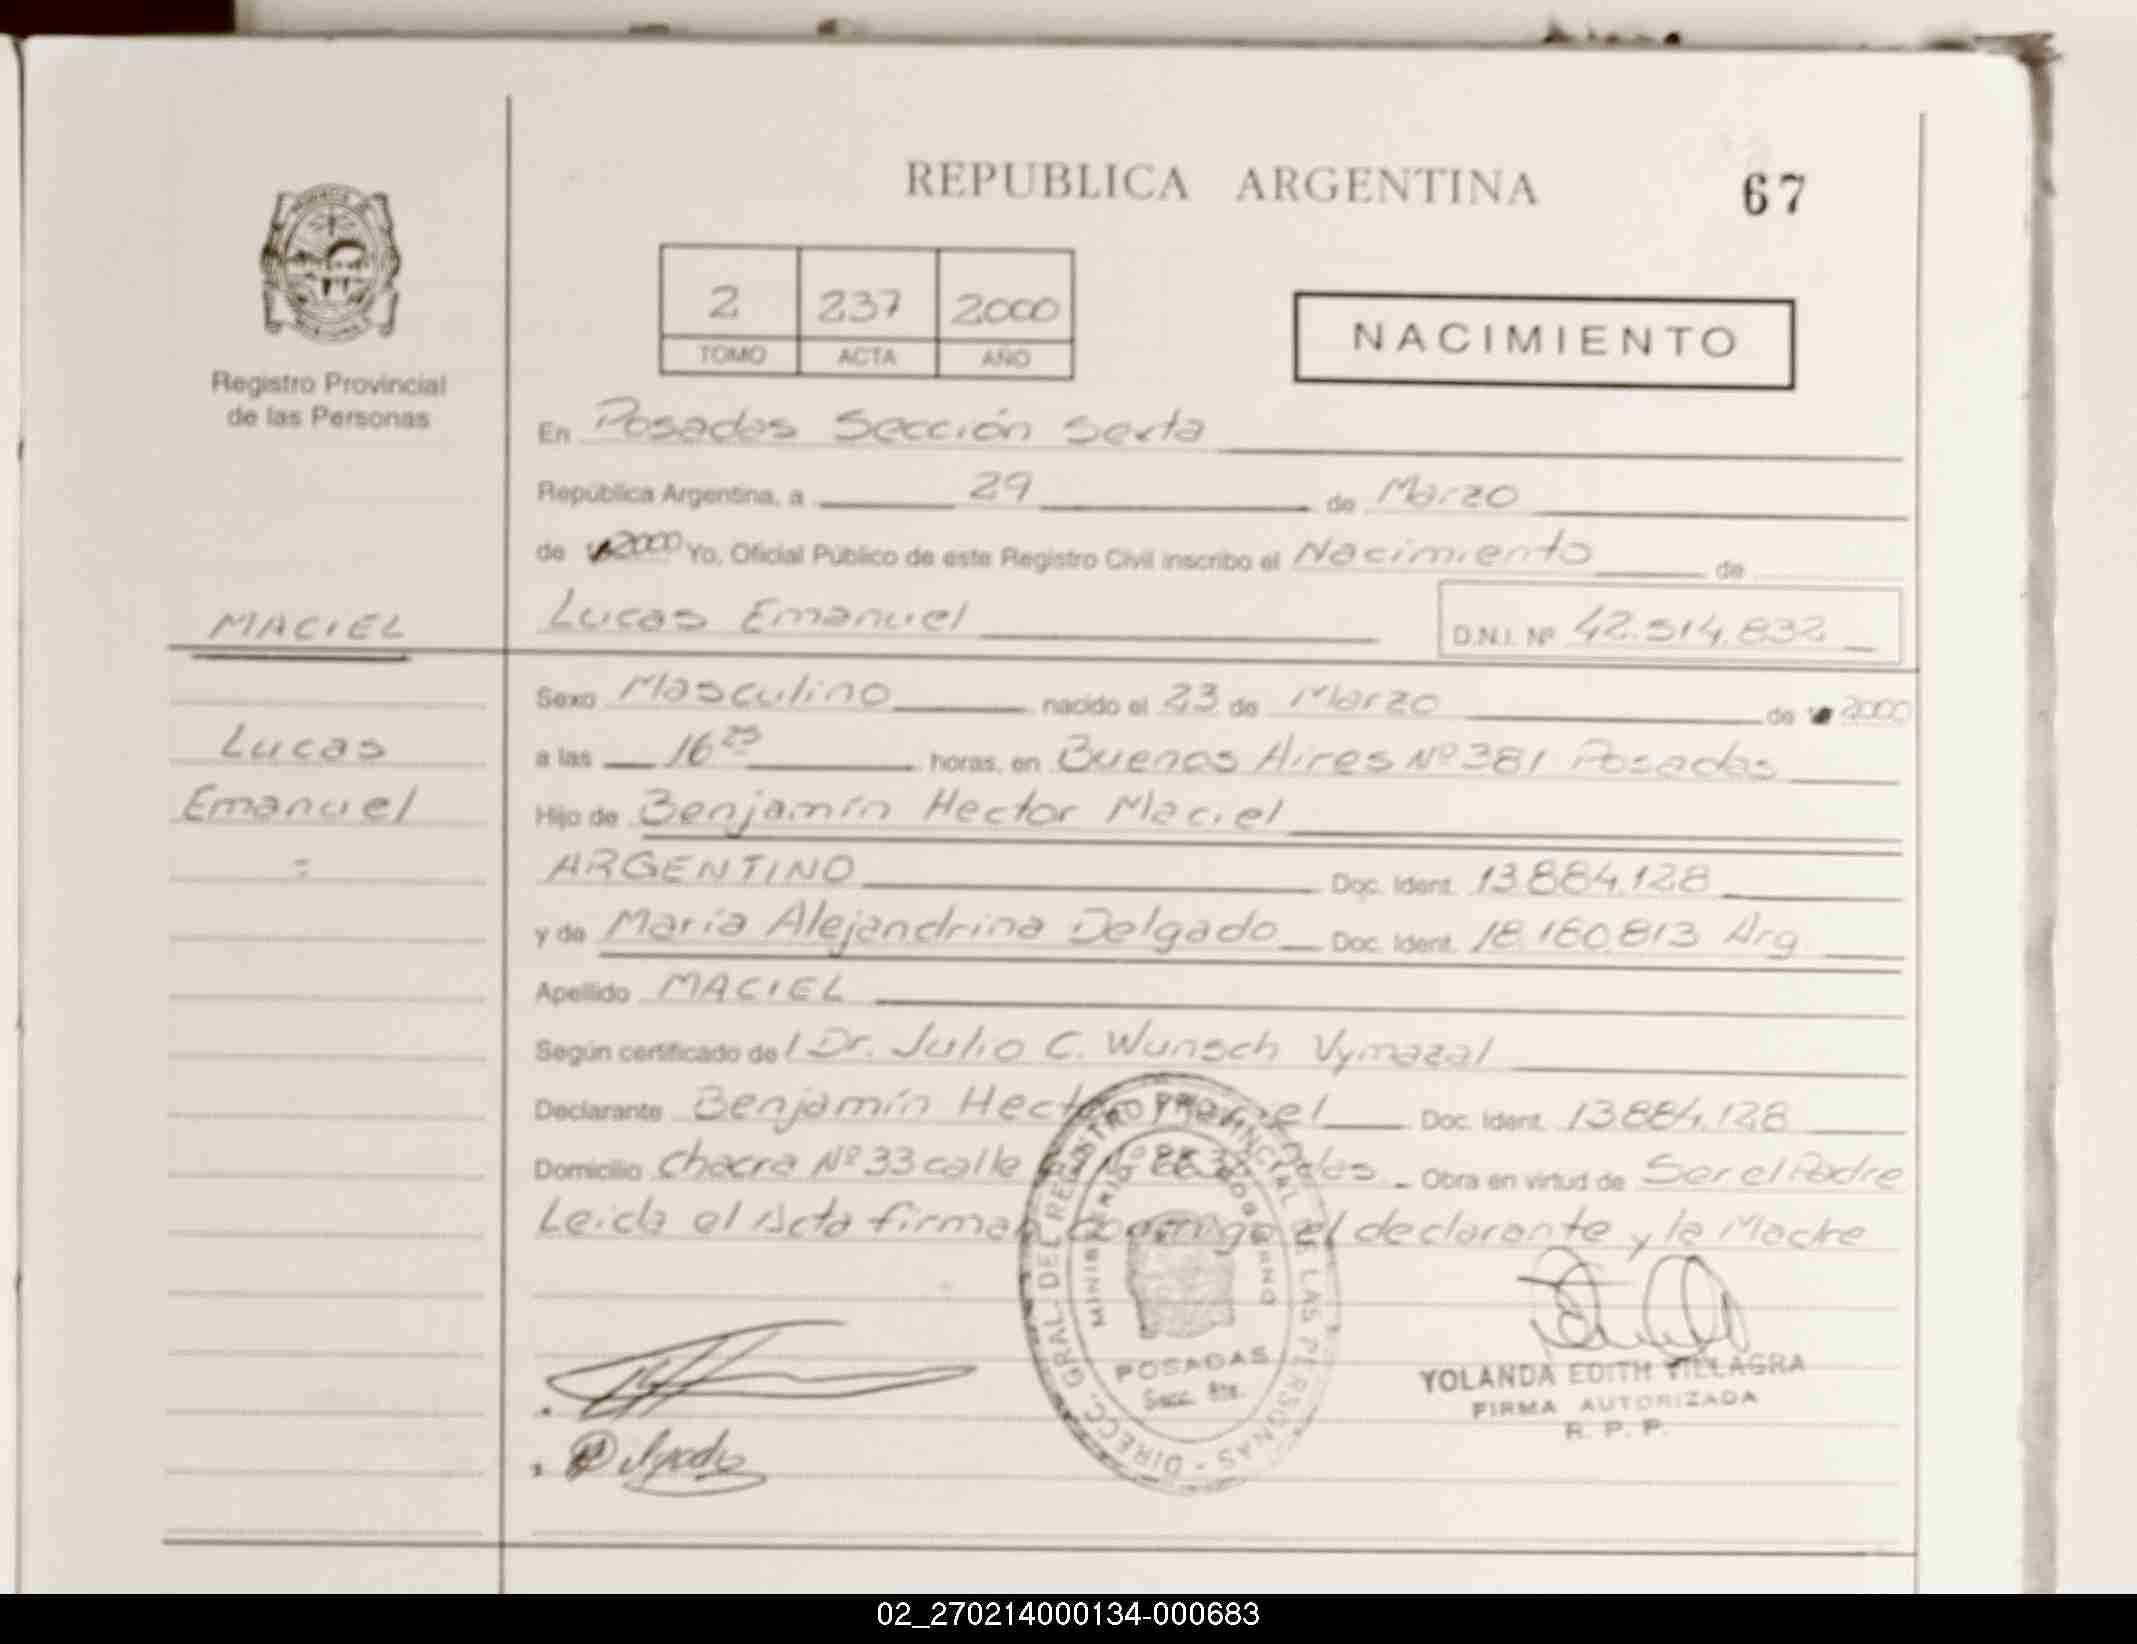 REPUBLICA ARGENTINA
67
2 237 2000
TOMO ACTA AÑO
NACIMIENTO
Registro Provincial
de las Personas
En Posadas Sección Sexta
República Argentina, a 29 de Marzo
de 2000 Yo, Oficial Público de este Registro Civil inscribo el Nacimiento de
MACIEL
Lucas Emanuel D.N.I. Nº 42.514.832
Sexo Masculino nacido el 23 de Marzo de 2000
Lucas
a las 16 25 horas, en Buenos Aires Nº 381 Posadas
Emanuel
Hijo de Benjamín Hector Maciel
ARGENTINO Doc. Ident. 13.884.128
y de María Alejandrina Delgado Doc. Ident. 18.160.813 Arg
Apellido MACIEL
Según certificado de l Dr. Julio C. Wunsch Vymazal
Declarante Benjamín Hector Maciel Doc. Ident. 13.884.128
Domicilio Chacra Nº 33 calle Obra en virtud de Ser el Padre
Leida el Acta firman conmigo el declarante y la Madre
DIRECC. GRAL. DEL REGISTRO PROVINCIAL DE LAS PERSONAS
MINISTERIO DE GOBIERNO
POSADAS
Secc. 6ta.
Delgado
YOLANDA EDITH VILLAGRA
FIRMA AUTORIZADA
R. P. P.
02_270214000134-000683